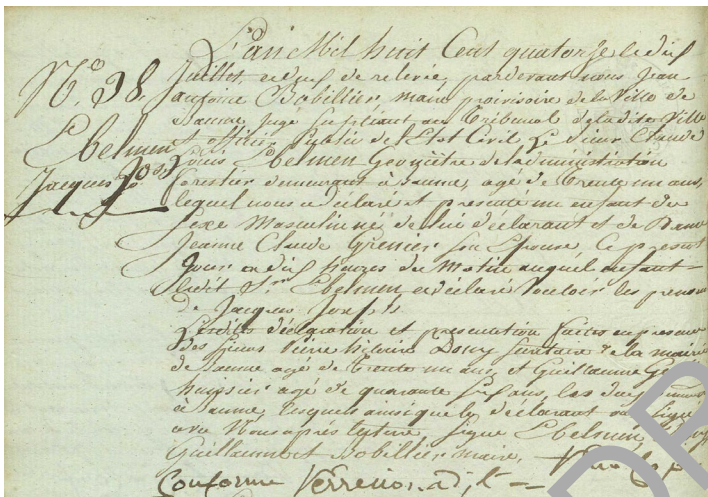 L'an Mil huit Cent quatorze le dix
N.º 98. Juillet, a dix de relevée, pardevant nous Jean
antoine Bobillier, maire provisoire de la Ville de
Baume, Juge suppléant au Tribunal de la dite Ville
Ebelmen et officier Public de l'Etat Civil Le Sieur Claude
Louis Ebelmen Géomètre de l'administration
Jacques Jos. forestier demeurant à Baume, agé de Trente un ans,
lequel nous a déclaré et presenté un enfant du
Sexe Masculin né de lui déclarant et de Dame
Jeanne Claude Grenier son Epouse, Ce present
Jour a dix heures du Matin auquel enfant
ledit Sr. Ebelmen a déclaré Vouloir les prenoms
de Jacques Joseph
Lesdites déclaration et presentation faites en presence
des Sieurs hilaire Secretaire de la mairie
de Baume agé de Trente un ans, et Guillaume
huissier agé de quarante ans, les deux
à Baume, lesquels ainsi que le déclarant ont signé
avec Nous après lecture Signé Ebelmen
Guillaume et Bobillier maire,
Conforme Verrenor. adjt.